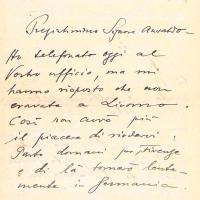 Pregiatissimo Signore Ansaldo -
Ho telefonato oggi al
Vostro ufficio, ma mi
hanno risposto che non
eravate a Livorno.
Così non avrò più
il piacere di vedervi.
Parto domani per Firenze
e di là tornarò lenta-
mente in Germania